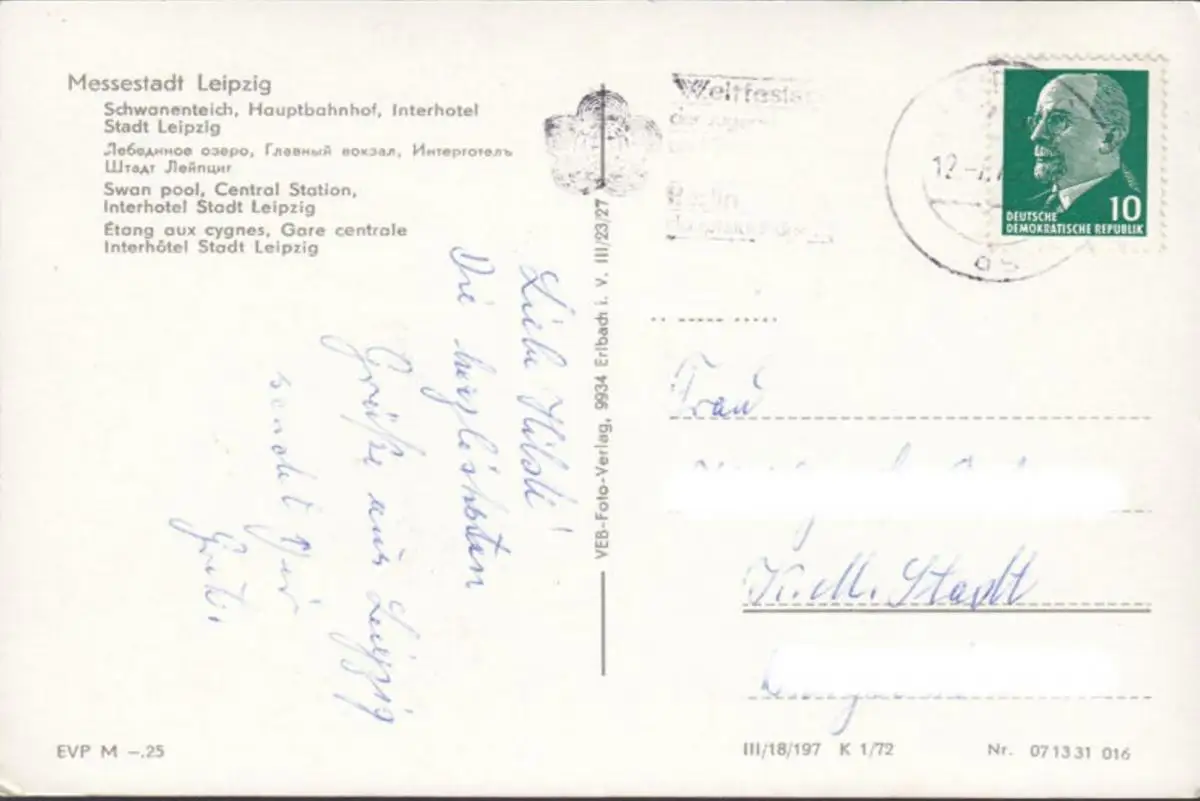 Messestadt Leipzig
Schwanenteich, Hauptbahnhof, Interhotel
Stadt Leipzig
Лебединое озеро, Главный вокзал, Интерготель
Штадт Лейпциг
Swan pool, Central Station,
Interhotel Stadt Leipzig
Étang aux cygnes, Gare centrale
Interhôtel Stadt Leipzig
Liebe Hilde!
Die herzlichsten
Grüße aus Leipzig
sendet Dir
VEB-Foto-Verlag, 9934 Erlbach i. V. III/23/27
Weltfests
der Jugend
Berlin
12
10
DEUTSCHE
DEMOKRATISCHE REPUBLIK
Frau
K. M. Stadt
EVP M –.25
III/18/197 K 1/72
Nr. 071331 016